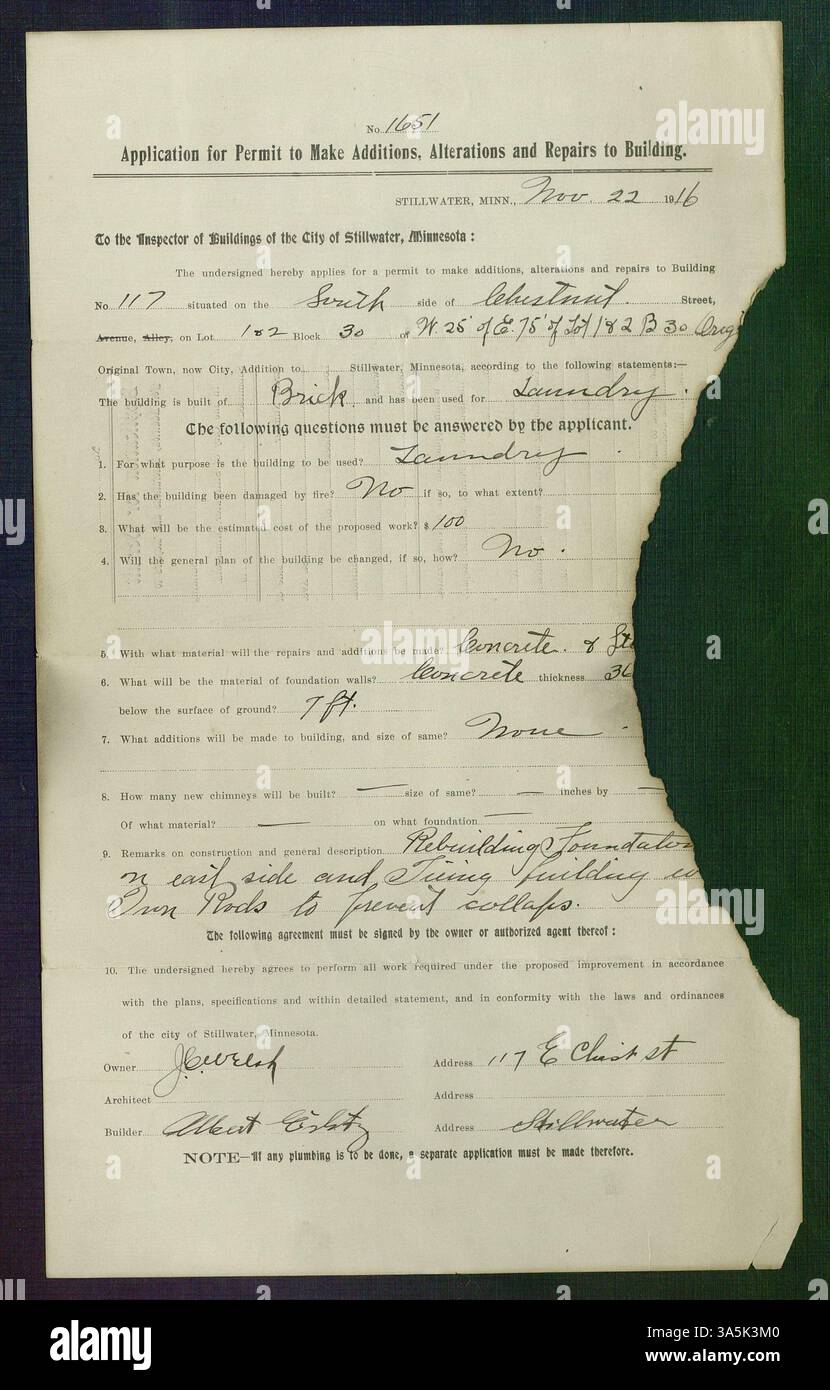 No. 1651
Application for Permit to Make Additions, Alterations and Repairs to Building.
STILLWATER, MINN., Nov. 22 1916
To the Inspector of Buildings of the City of Stillwater, Minnesota :
The undersigned hereby applies for a permit to make additions, alterations and repairs to Building
No. 117 situated on the South side of Chestnut Street,
Avenue, Alley, on Lot 1&2 Block 30 of W. 25' of E. 75' of Lot 1&2 B 30 Orig
Original Town, now City, Addition to Stillwater, Minnesota, according to the following statements:—
The building is built of Brick and has been used for Laundry.
The following questions must be answered by the applicant.
1. For what purpose is the building to be used? Laundry
2. Has the building been damaged by fire? No if so, to what extent?
3. What will be the estimated cost of the proposed work? $ 100
4. Will the general plan of the building be changed, if so, how? No.
5. With what material will the repairs and additions be made? Concrete. & Sto
6. What will be the material of foundation walls? Concrete thickness 36
below the surface of ground? 7 ft.
7. What additions will be made to building, and size of same? None
8. How many new chimneys will be built? — size of same? — inches by —
Of what material? — on what foundation —
9. Remarks on construction and general description Rebuilding Foundation
on east side and Tieing building w
Iron Rods to prevent collaps.
The following agreement must be signed by the owner or authorized agent thereof :
10. The undersigned hereby agrees to perform all work required under the proposed improvement in accordance
with the plans, specifications and within detailed statement, and in conformity with the laws and ordinances
of the city of Stillwater, Minnesota.
Owner J. C. Welsh Address 117 E Chest st
Architect Address
Builder Albert Address Stillwater
NOTE—If any plumbing is to be done, a separate application must be made therefore.
alamy
alamy
alamy
alamy
Image ID: 3A5K3M0
www.alamy.com